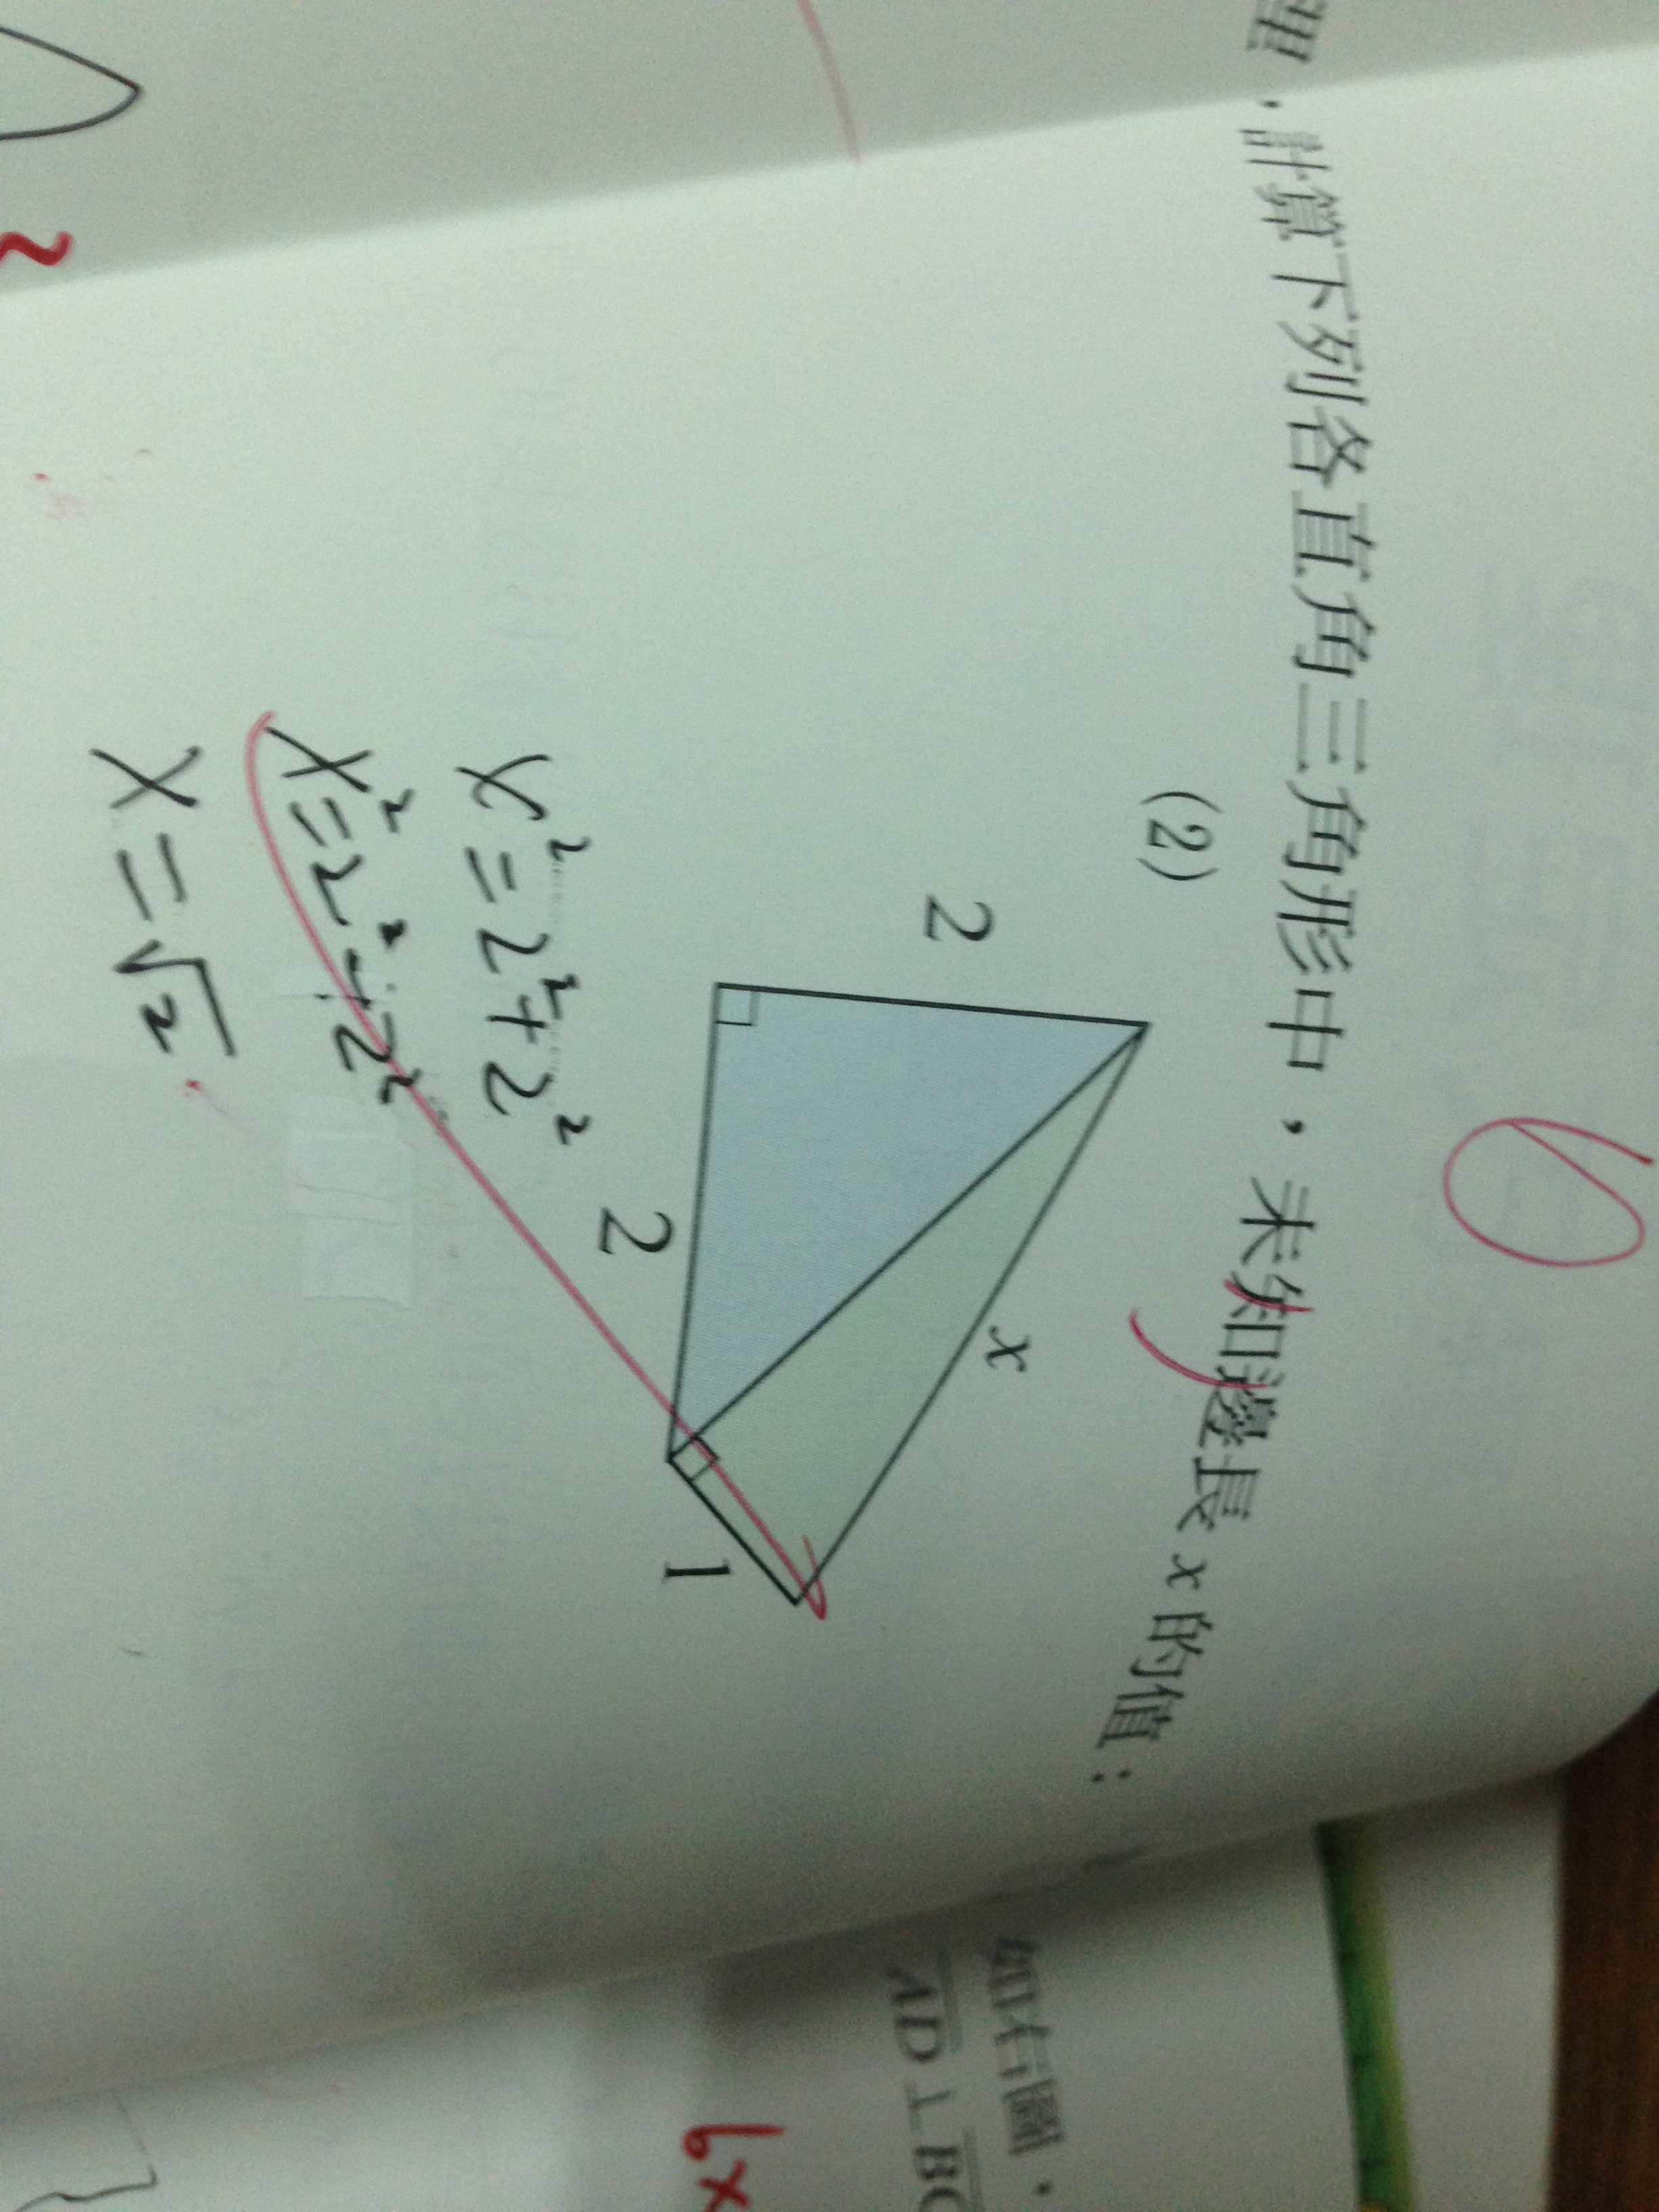 ,計算下列各直角三角形中,未知邊長 x 的值:
6
(2)
2
x
2
1
x²=2²+2²
x²=2²+2²
x=√2
2
如右圖,
AD⊥BC
6x